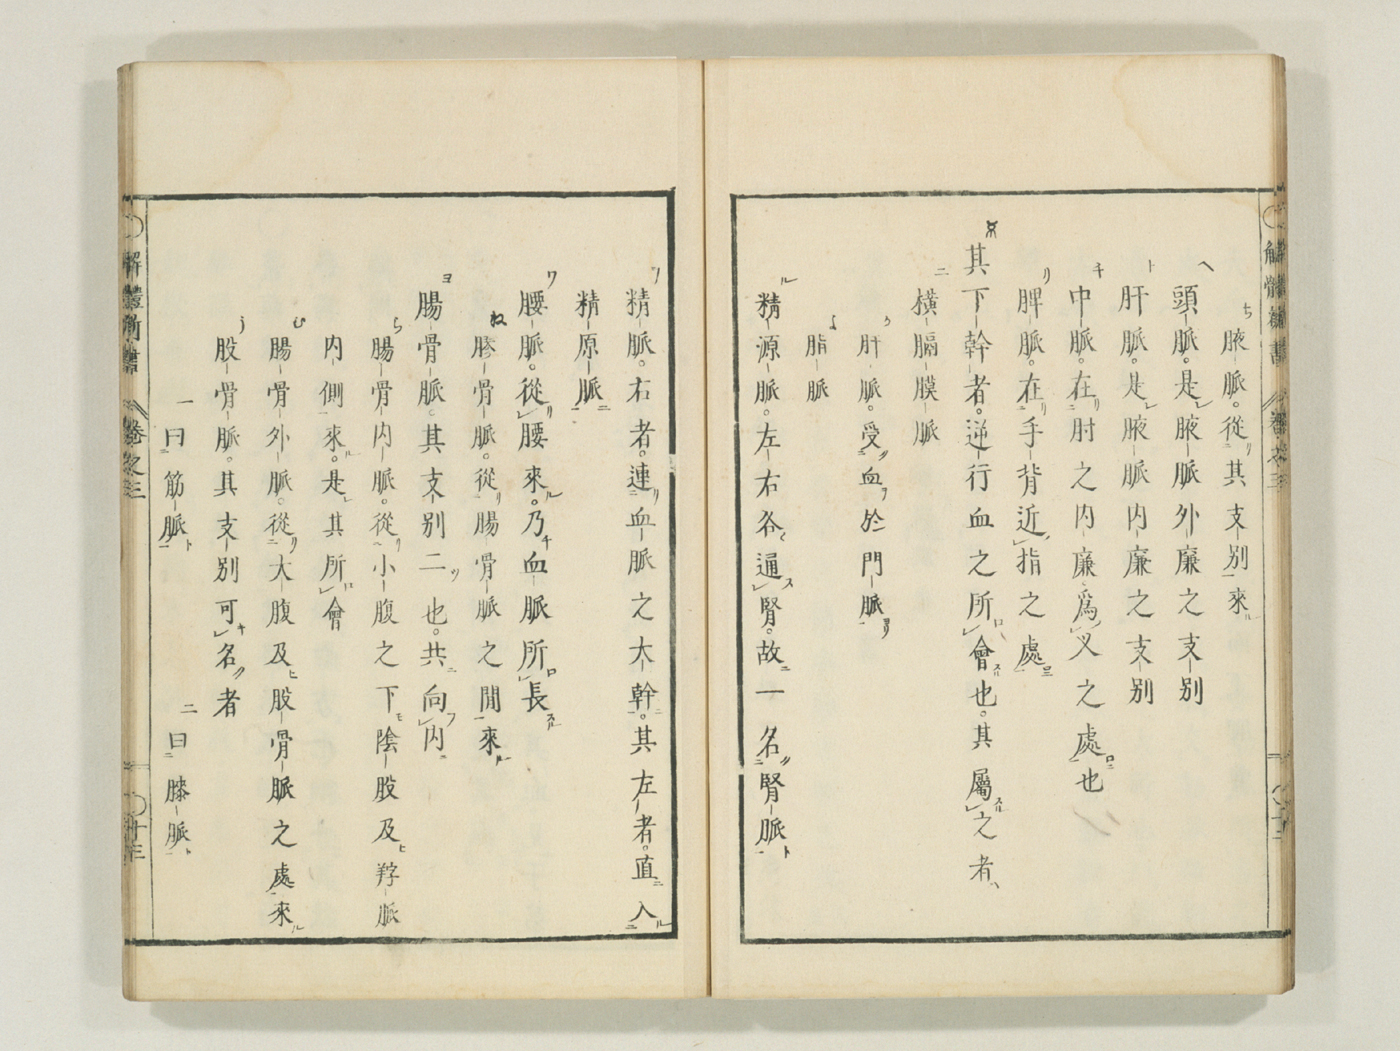 腋脈。從其支別來
頭脈。是腋脈外廉之支別
肝脈。是腋脈内廉之支別
中脈。在肘之内廉爲叉之處也
脾脈。在手背近指之處
其下幹者。逆行血之所會也。其屬之者
横膈膜脈
肝脈。受血於門脈
脂脈
精源脈。左右各通腎。故一名腎脈
精脈。右者。連血脈之大幹。其左者。直入
精原脈
腰脈。從腰來。乃血脈所長
䯊骨脈。從腸骨脈之間來
腸骨脈。其支別二也。共向内
腸骨内脈。從小腹之下陰股及脬脈
内側來。是其所會
腸骨外脈。從大腹及股骨脈之處來
股骨脈。其支別可名者
一曰筋脈 二曰膝脈
解體新書 卷之三